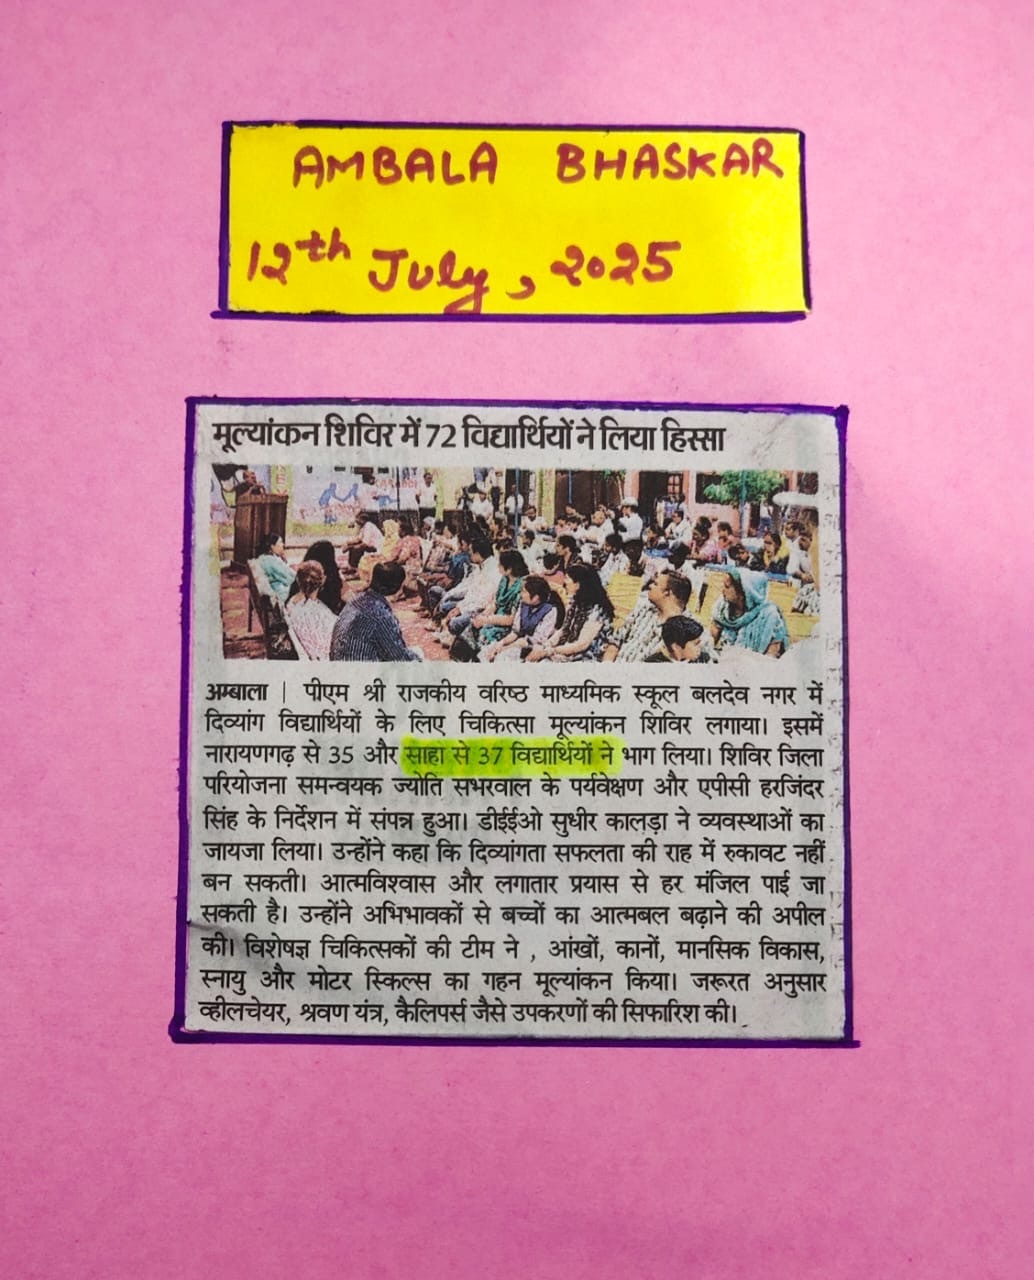 AMBALA BHASKAR
12th July, 2025
मूल्यांकन शिविर में 72 विद्यार्थियों ने लिया हिस्सा
अम्बाला | पीएम श्री राजकीय वरिष्ठ माध्यमिक स्कूल बलदेव नगर में
दिव्यांग विद्यार्थियों के लिए चिकित्सा मूल्यांकन शिविर लगाया। इसमें
नारायणगढ़ से 35 और साहा से 37 विद्यार्थियों ने भाग लिया। शिविर जिला
परियोजना समन्वयक ज्योति सभरवाल के पर्यवेक्षण और एपीसी हरजिंदर
सिंह के निर्देशन में संपन्न हुआ। डीईईओ सुधीर कालड़ा ने व्यवस्थाओं का
जायजा लिया। उन्होंने कहा कि दिव्यांगता सफलता की राह में रुकावट नहीं
बन सकती। आत्मविश्वास और लगातार प्रयास से हर मंजिल पाई जा
सकती है। उन्होंने अभिभावकों से बच्चों का आत्मबल बढ़ाने की अपील
की। विशेषज्ञ चिकित्सकों की टीम ने , आंखों, कानों, मानसिक विकास,
स्नायु और मोटर स्किल्स का गहन मूल्यांकन किया। जरूरत अनुसार
व्हीलचेयर, श्रवण यंत्र, कैलिपर्स जैसे उपकरणों की सिफारिश की।